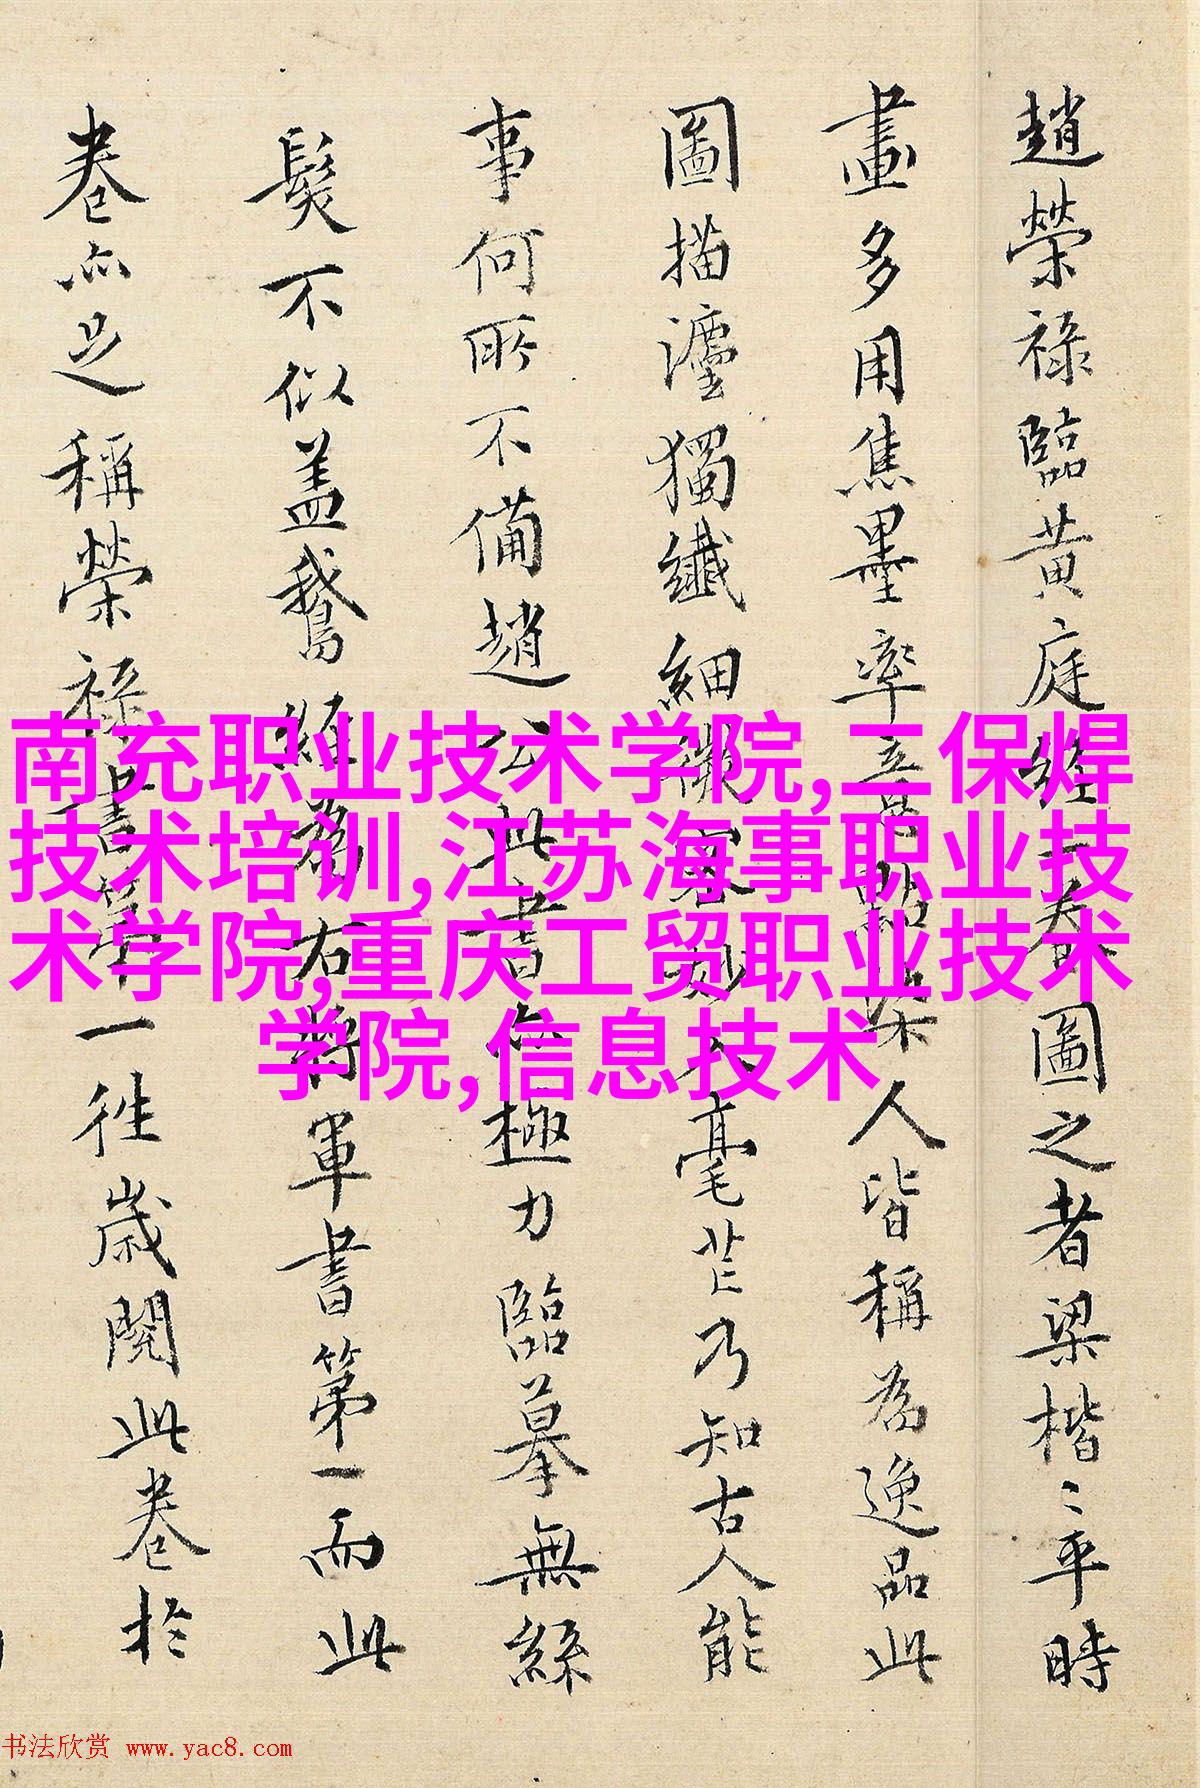 趙榮祿臨黃庭經一卷圖之者梁楷〻平時
畫多用焦墨率立點染人皆稱為逸品此
圖描瀍獨纖細微密妙入毫芒乃知古人能
事何所不備趙公此書亦極力臨摹無絲
髮不似盖鵞經為右將軍書第一而此
卷亦足稱榮祿書第一徃歲閱此卷於
南充职业技术学院,二保焊
技术培训,江苏海事职业技
术学院,重庆工贸职业技术
学院,信息技术
书法欣赏 www.yac8.com